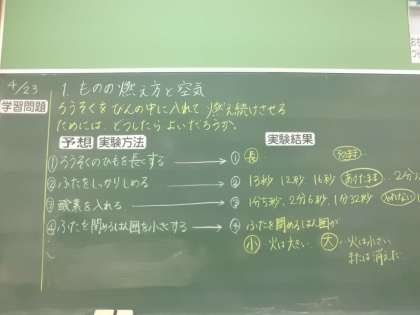 4/23
1. ものの燃え方と空気
学習問題
ろうそくをびんの中に入れて燃え続けさせる
ためには、どうしたらよいだろうか。
予想 実験方法
実験結果
①ろうそくのひもを長くする → ① 長
②ふたをしっかりしめる → ② 13秒 12秒 16秒
③酸素を入れる → ③ 1分5秒、2分6秒、1分32秒
④ふたを閉めるはん囲を小さくする → ④ ふたを閉めるはん囲が
小 火は大きい 大 火は小さい
または消えた